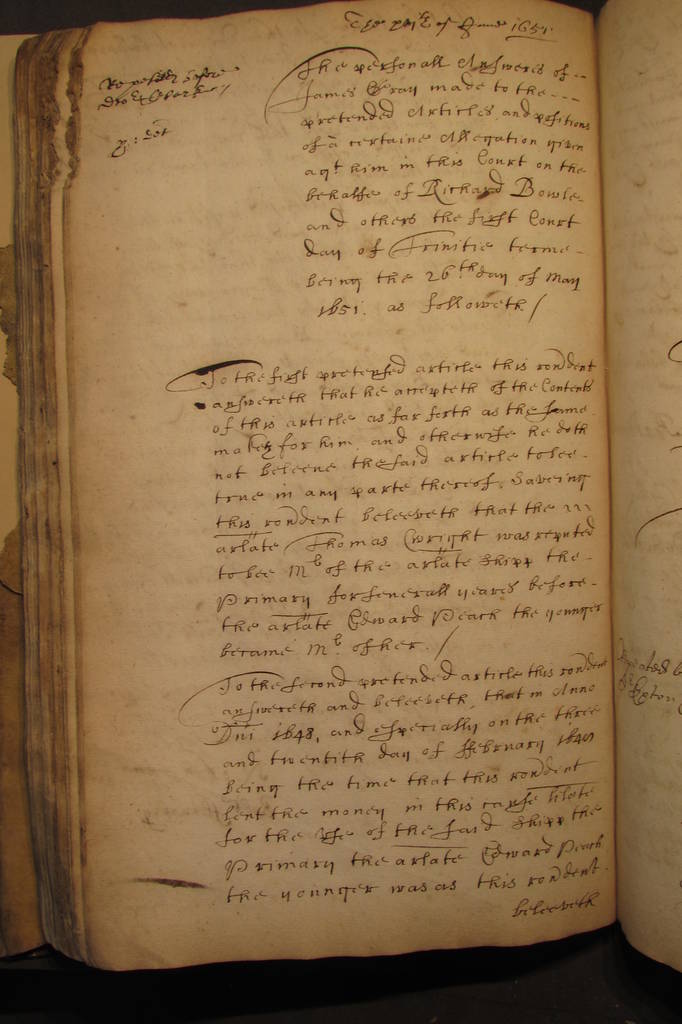 The of June 1651
Repeated before
The personall Answeres of
James Gray made to the
pretended Articles and positions
of a certaine Allegation given
agt him in this Court on the
behalfe of Richard Bowle
and others the first Court
day of Trinitie terme
being the 26th day of May
1651. as followeth /
To the first pretended article this rondent
answereth that he accepteth of the Contents
of this article as far forth as the same
makes for him and otherwise he doth
not beleeve the said article to bee
true in any parte thereof, Saveing
this rondent beleeveth that the
arlate Thomas Wright was reputed
to bee Mr of the arlate shipp the
Primary for severall yeares before
the arlate Edward Peach the younger
became Mr of her. /
To the second pretended article this rondent
answereth and beleeveth, that in Anno
Dni 1648, and especially on the three
and twentith day of ffebruary 1648
being the time that this rondent
lent the money in this cause lilate
for the use of the said shipp the
Primary the arlate Edward Peach
the younger was as this rondent
beleeveth
Exton